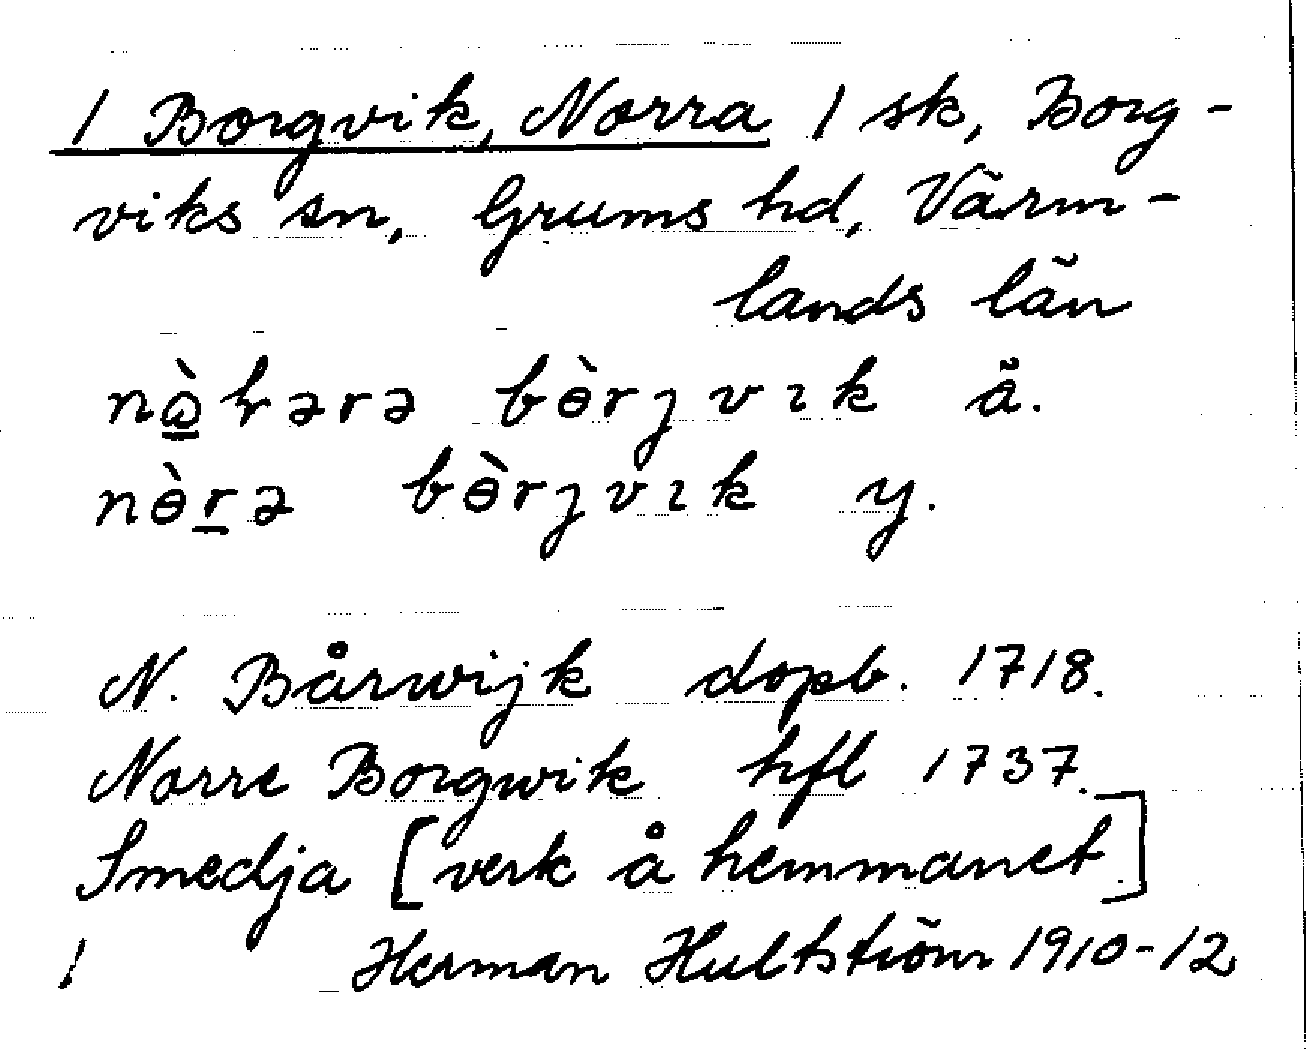 1 Borgvik, Norra 1 sk, Borg-
viks sn, Grums hd, Värm-
lands län
bɵ̀rȷvɩk ä.
nɵ̀r̲ə bɵ̀rȷvɩk y.
N. Bårwijk dopb. 1718.
Norre Borgwik hfl 1737.
Smedja [verk å hemmanet]
1 Herman Hultström 1910-12